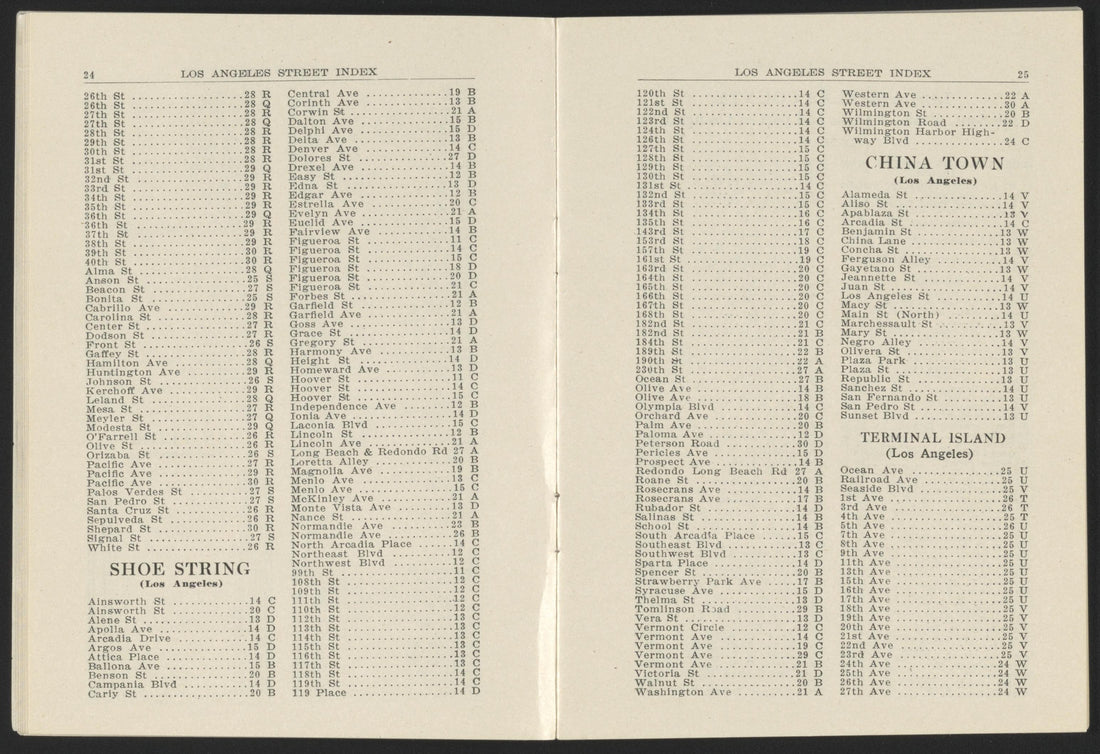 24 LOS ANGELES STREET INDEX
26th St ..................28 R
26th St ..................28 Q
27th St ..................28 R
27th St ..................28 Q
28th St ..................28 R
29th St ..................28 R
30th St ..................28 R
31st St ..................28 R
31st St ..................29 Q
32nd St ..................29 R
33rd St ..................29 R
34th St ..................29 R
35th St ..................29 R
36th St ..................29 Q
36th St ..................29 R
37th St ..................29 R
38th St ..................29 R
39th St ..................30 R
40th St ..................30 R
Alma St ..................28 Q
Anson St ..................25 S
Beacon St ..................27 S
Bonita St ..................25 S
Cabrillo Ave ..................29 R
Carolina St ..................28 R
Center St ..................27 R
Dodson St ..................27 R
Front St ..................26 S
Gaffey St ..................28 R
Hamilton Ave ..................28 Q
Huntington Ave ..................29 R
Johnson St ..................26 S
Kerchoff Ave ..................29 R
Leland St ..................28 Q
Mesa St ..................27 R
Meyler St ..................27 Q
Modesta St ..................29 Q
O'Farrell St ..................26 R
Olive St ..................26 R
Orizaba St ..................26 S
Pacific Ave ..................27 R
Pacific Ave ..................29 R
Pacific Ave ..................30 R
Palos Verdes St ..................27 S
San Pedro St ..................27 S
Santa Cruz St ..................26 R
Sepulveda St ..................26 R
Shepard St ..................30 R
Signal St ..................27 S
White St ..................26 R
SHOE STRING
(Los Angeles)
Ainsworth St ..................14 C
Ainsworth St ..................20 C
Alene St ..................13 D
Apolla Ave ..................14 D
Arcadia Drive ..................14 C
Argos Ave ..................15 D
Attica Place ..................14 D
Ballona Ave ..................15 B
Benson St ..................20 B
Campania Blvd ..................14 D
Carly St ..................20 B
Central Ave ..................19 B
Corinth Ave ..................13 B
Corwin St ..................21 A
Dalton Ave ..................15 B
Delphi Ave ..................15 D
Delta Ave ..................13 B
Denver Ave ..................14 C
Dolores St ..................27 D
Drexel Ave ..................14 B
Easy St ..................12 B
Edna St ..................13 D
Edgar Ave ..................12 B
Estrella Ave ..................20 C
Evelyn Ave ..................21 A
Euclid Ave ..................15 D
Fairview Ave ..................14 B
Figueroa St ..................11 C
Figueroa St ..................14 C
Figueroa St ..................15 C
Figueroa St ..................18 D
Figueroa St ..................20 D
Figueroa St ..................21 C
Forbes St ..................21 A
Garfield St ..................12 B
Garfield Ave ..................21 A
Goss Ave ..................13 D
Grace St ..................14 D
Gregory St ..................21 A
Harmony Ave ..................13 B
Height St ..................14 D
Homeward Ave ..................13 D
Hoover St ..................11 C
Hoover St ..................14 C
Hoover St ..................15 C
Independence Ave ..................12 B
Ionia Ave ..................14 D
Laconia Blvd ..................15 C
Lincoln St ..................12 B
Lincoln Ave ..................21 A
Long Beach & Redondo Rd 27 A
Loretta Alley ..................20 B
Magnolia Ave ..................19 B
Menlo Ave ..................13 C
Menlo Ave ..................15 C
McKinley Ave ..................21 A
Monte Vista Ave ..................13 D
Nance St ..................21 A
Normandie Ave ..................23 B
Normandie Ave ..................26 B
North Arcadia Place ..................14 C
Northeast Blvd ..................12 C
Northwest Blvd ..................12 C
99th St ..................11 C
108th St ..................12 C
109th St ..................12 C
111th St ..................12 C
110th St ..................12 C
112th St ..................13 C
113th St ..................13 C
114th St ..................13 C
115th St ..................13 C
116th St ..................13 C
117th St ..................13 C
118th St ..................14 C
119th St ..................14 C
119 Place ..................14 D
LOS ANGELES STREET INDEX 25
120th St ..................14 C
121st St ..................14 C
122nd St ..................14 C
123rd St ..................14 C
124th St ..................14 C
126th St ..................14 C
127th St ..................15 C
128th St ..................15 C
129th St ..................15 C
130th St ..................15 C
131st St ..................14 C
132nd St ..................15 C
133rd St ..................15 C
134th St ..................16 C
135th St ..................16 C
143rd St ..................17 C
153rd St ..................18 C
157th St ..................19 C
161st St ..................19 C
163rd St ..................20 C
164th St ..................20 C
165th St ..................20 C
166th St ..................20 C
167th St ..................20 C
168th St ..................20 C
182nd St ..................21 C
182nd St ..................21 B
184th St ..................21 C
189th St ..................22 B
190th St ..................22 A
230th St ..................27 A
Ocean St ..................27 B
Olive Ave ..................14 B
Olive Ave ..................18 B
Olympia Blvd ..................14 C
Orchard Ave ..................20 C
Palm Ave ..................20 B
Paloma Ave ..................12 D
Peterson Road ..................30 D
Pericles Ave ..................15 D
Prospect Ave ..................14 B
Redondo Long Beach Rd 27 A
Roane St ..................20 B
Rosecrans Ave ..................14 B
Rosecrans Ave ..................17 B
Rubador St ..................14 D
Salinas St ..................14 B
School St ..................14 B
South Arcadia Place ..................15 C
Southeast Blvd ..................13 C
Southwest Blvd ..................13 C
Sparta Place ..................14 D
Spencer St ..................20 B
Strawberry Park Ave ..................17 B
Syracuse Ave ..................15 D
Thelma St ..................13 D
Tomlinson Road ..................29 B
Vera St ..................13 D
Vermont Circle ..................12 C
Vermont Ave ..................14 C
Vermont Ave ..................19 C
Vermont Ave ..................29 C
Vermont Ave ..................21 B
Victoria St ..................21 D
Walnut St ..................20 B
Washington Ave ..................21 A
Western Ave ..................22 A
Western Ave ..................30 A
Wilmington St ..................20 B
Wilmington Road ..................22 D
Wilmington Harbor High-
way Blvd ..................24 C
CHINA TOWN
(Los Angeles)
Alameda St ..................14 V
Aliso St ..................14 V
Apablaza St ..................13 V
Arcadia St ..................14 C
Benjamin St ..................13 W
China Lane ..................13 W
Concha St ..................13 W
Ferguson Alley ..................14 V
Gayetano St ..................13 W
Jeannette St ..................14 V
Juan St ..................14 V
Los Angeles St ..................14 U
Macy St ..................13 W
Main St (North) ..................14 U
Marchessault St ..................13 V
Mary St ..................13 W
Negro Alley ..................14 V
Olivera St ..................13 V
Plaza Park ..................13 U
Plaza St ..................13 U
Republic St ..................13 U
Sanchez St ..................14 U
San Fernando St ..................13 U
San Pedro St ..................14 V
Sunset Blvd ..................13 U
TERMINAL ISLAND
(Los Angeles)
Ocean Ave ..................25 U
Railroad Ave ..................25 U
Seaside Blvd ..................25 V
1st Ave ..................26 T
3rd Ave ..................26 T
4th Ave ..................25 T
5th Ave ..................26 U
7th Ave ..................25 U
8th Ave ..................25 U
9th Ave ..................25 U
11th Ave ..................25 U
13th Ave ..................25 U
15th Ave ..................25 U
16th Ave ..................25 U
17th Ave ..................25 U
18th Ave ..................25 V
19th Ave ..................25 V
20th Ave ..................25 V
21st Ave ..................25 V
22nd Ave ..................25 V
23rd Ave ..................25 V
24th Ave ..................24 W
25th Ave ..................24 W
26th Ave ..................24 W
27th Ave ..................24 W